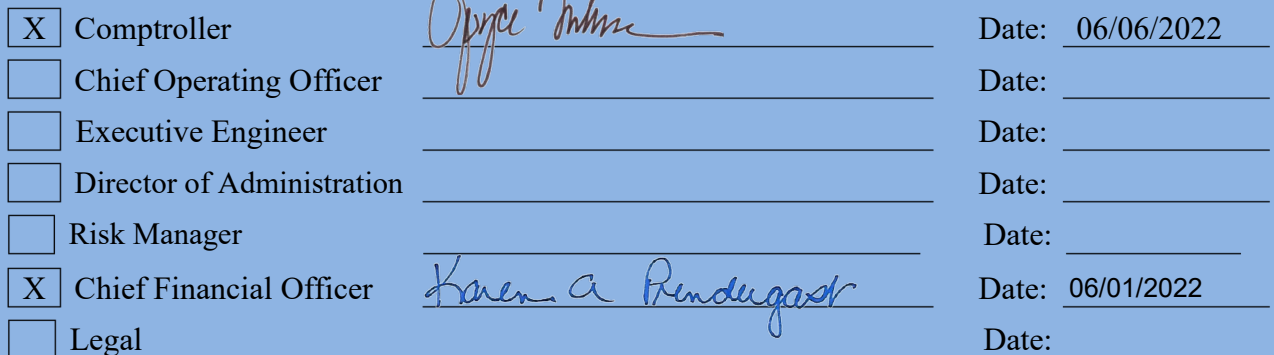 X Comptroller Date: 06/06/2022
Chief Operating Officer Date:
Executive Engineer Date:
Director of Administration Date:
Risk Manager Date:
X Chief Financial Officer Karen A Prendergast Date: 06/01/2022
Legal Date: